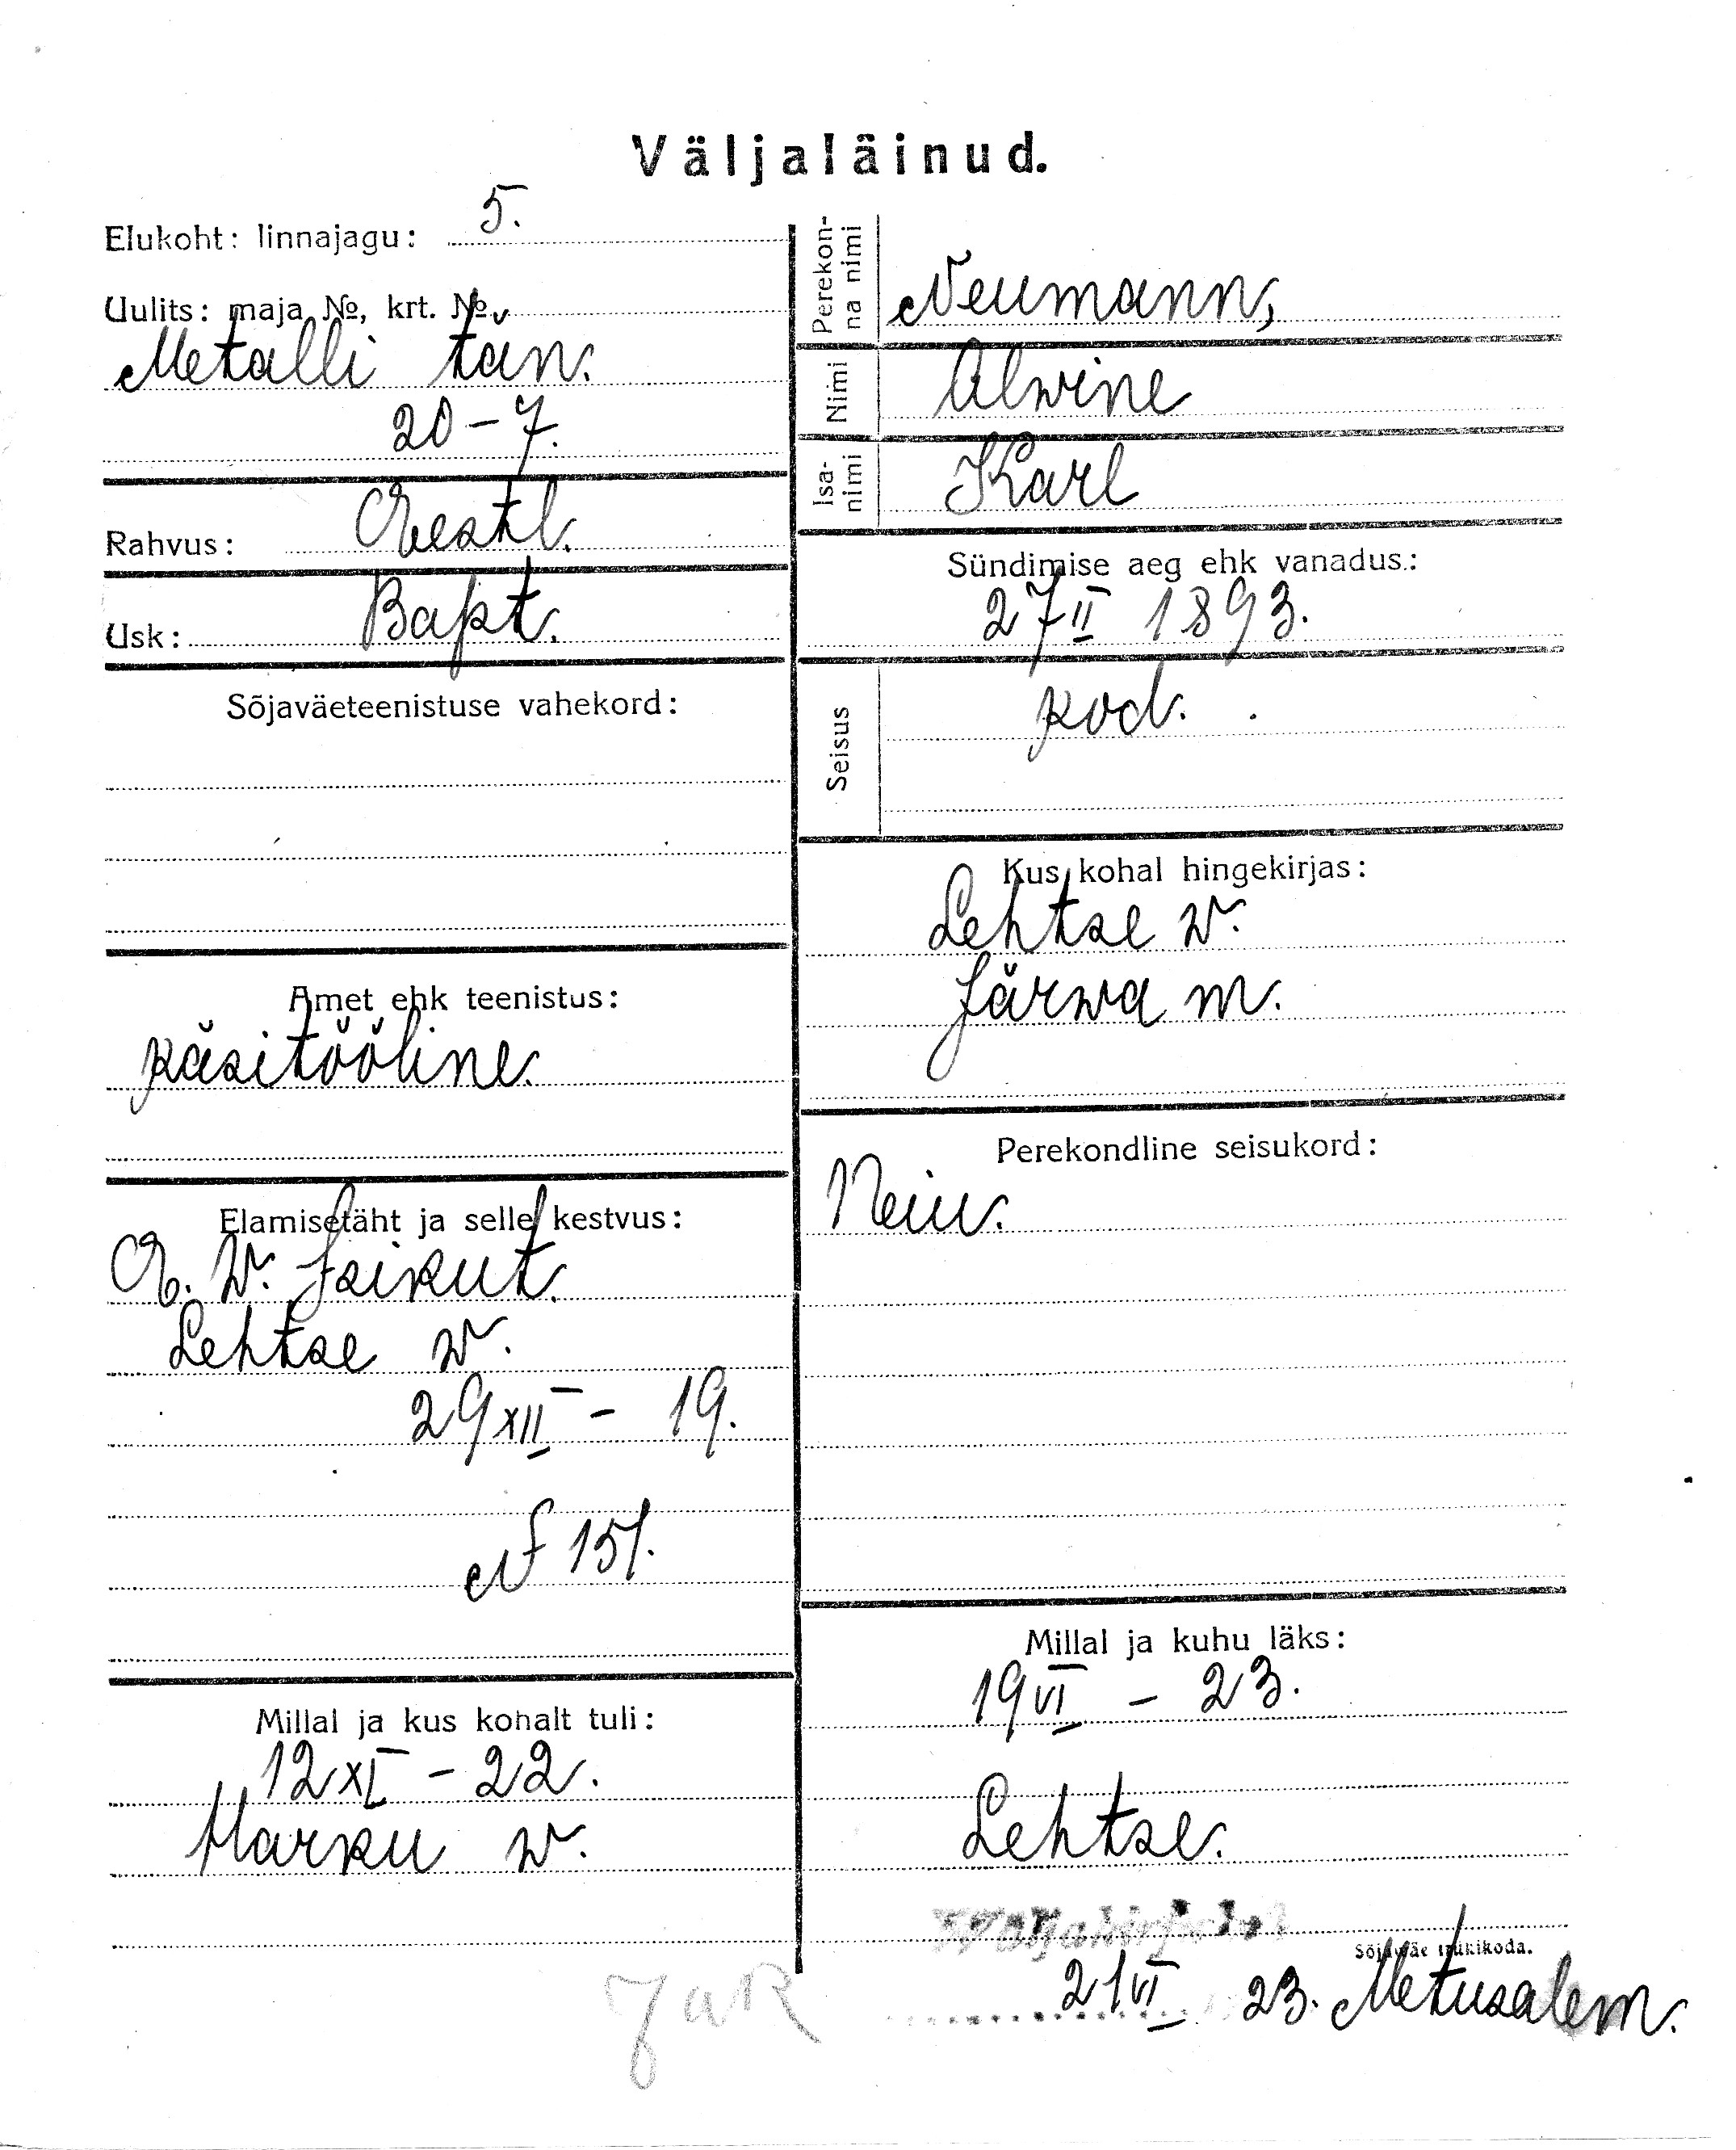 Väljaläinud.
Elukoht: linnajagu: 5.
Uulits: maja №, krt. №
Metalli tän.
20-7.
Rahvus: Eestl.
Usk: Bapt.
Sõjaväeteenistuse vahekord:
Amet ehk teenistus:
käsitööline.
Elamisetäht ja selle kestvus:
E. W. Isikut.
Lehtse w.
29 XII - 19.
№ 151.
Millal ja kus kohalt tuli:
12 XI - 22.
Harku w.
Perekon-
na nimi
Neumann,
Nimi
Alwine
Isa-
nimi
Karl
Sündimise aeg ehk vanadus:
27 II 1893.
Seisus
kod.
Kus kohal hingekirjas:
Lehtse w.
Järwa m.
Perekondline seisukord:
Neiu.
Millal ja kuhu läks:
19 VI - 23.
Lehtse.
Sõjaväe trükikoda.
21 VI 23. Metusalem.
JaR